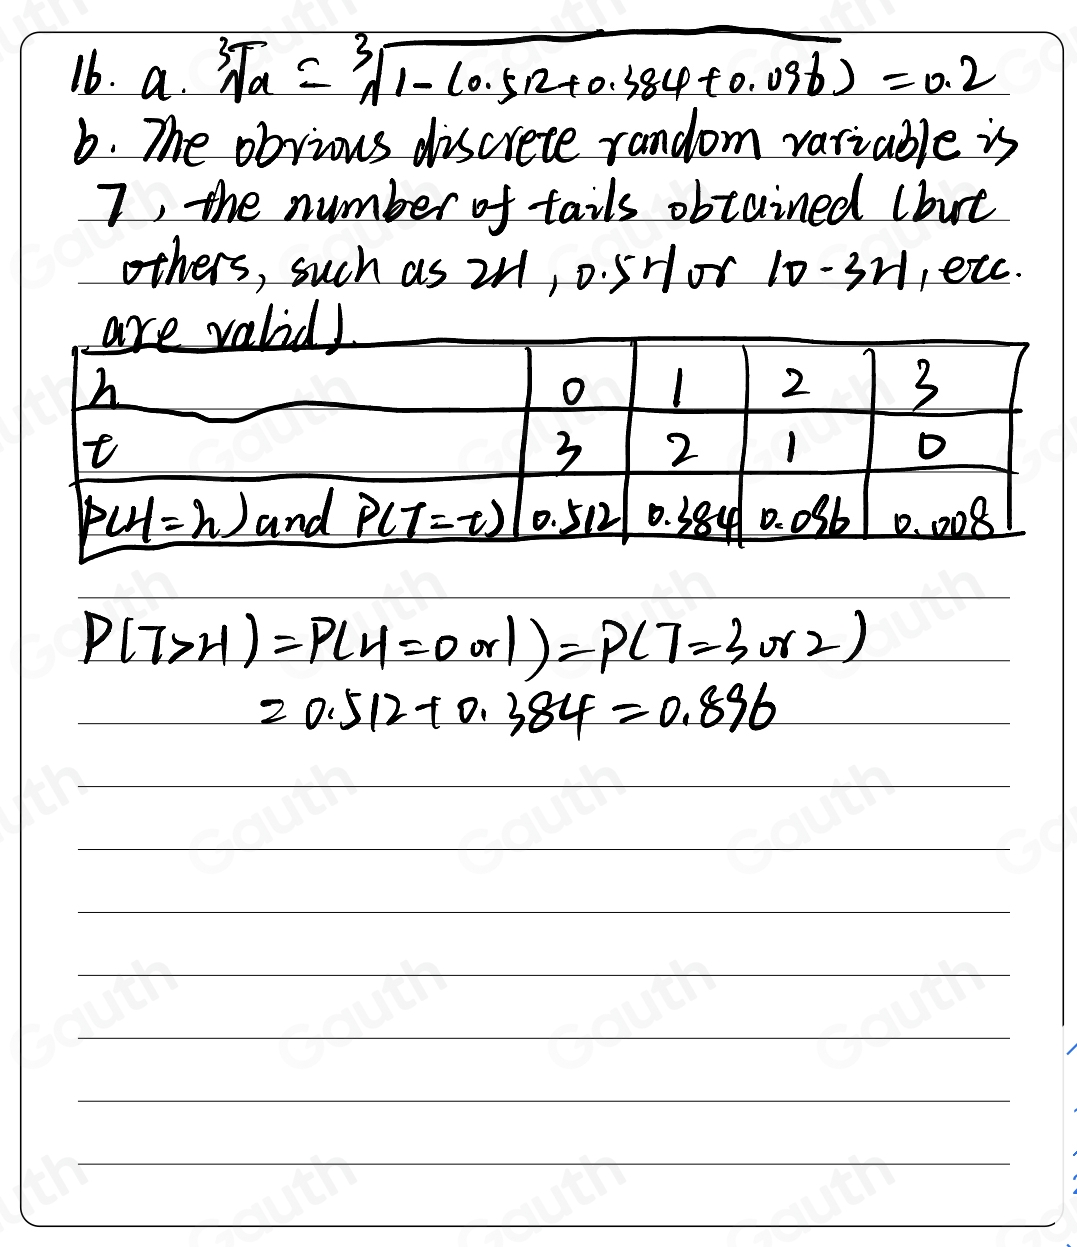 16. a. ∛a = ∛(1-(0.512+0.384+0.096)) = 0.2
b. The obvious discrete random variable is
T, the number of tails obtained (but
others, such as 2H, 0.5H or 10-3H, etc.
are valid).
h 0 1 2 3
t 3 2 1 0
P(H=h) and P(T=t) 0.512 0.384 0.096 0.008
P(T>H) = P(H=0 or 1) = P(T=3 or 2)
= 0.512+0.384 = 0.896